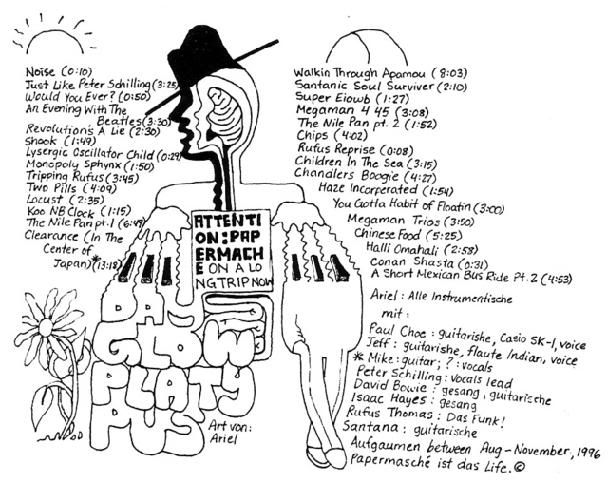 Noise (0:10)
Just Like Peter Schilling (3:25)
Would You Ever? (0:50)
An Evening With The
Beatles (3:30)
Revolution's A Lie (2:30)
Shook (1:49)
Lysergic Oscillator Child (0:29)
Monopoly Sphynx (1:50)
Tripping Rufus (3:45)
Two Pills (4:09)
Locust (2:35)
Koo NB Clock (1:15)
The Nile Pan pt. 1
Clearance (In The
Center of
Japan)* (13:18)
ATTENTI
ON:PAP
ERMACH
E ON A LO
NG TRIP NOW
DAS
GLOW
PLATY
PUS
Art von:
Ariel
Walkin Through Apamou (8:03)
Santanic Soul Surviver (2:10)
Super Eiowb (1:27)
Megaman 4 45 (3:08)
The Nile Pan pt. 2 (1:52)
Chips (4:02)
Rufus Reprise (0:08)
Children In The Sea (3:15)
Chandlers Boogie (4:27)
Haze Incorperated (1:54)
You Gotta Habit of Floatin (3:00)
Megaman Trios (3:50)
Chinese Food (5:25)
Halli Omahali (2:58)
Conan Shasta (0:31)
A Short Mexican Bus Ride Pt. 2 (4:53)
Ariel: Alle Instrumentische
mit:
Paul Choe: guitarishe, Casio SK-1, voice
Jeff: guitarishe, flaute Indian, voice
* Mike: guitar; ?: vocals
Peter Schilling: vocals lead
David Bowie: gesang, guitarische
Isaac Hayes: gesang
Rufus Thomas: Das Funk!
Santana: guitarische
Aufgaumen between Aug-November, 1996
Papermasché ist das Life. ©